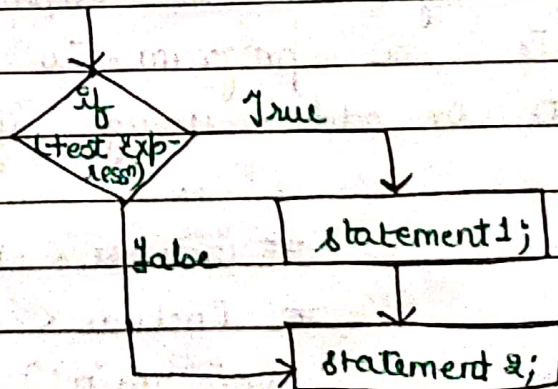 if
(test Exp-
ressn)
True
False
statement 1;
statement 2;